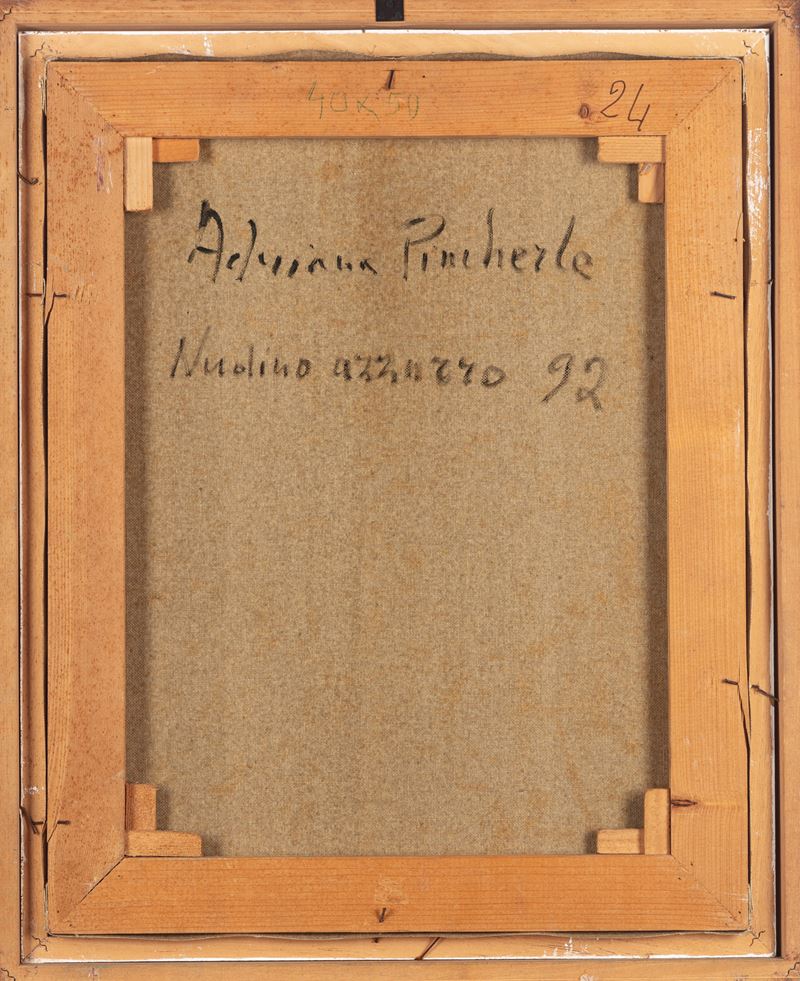 40x50
24
Adriana Pincherle
Nudino azzurro 92